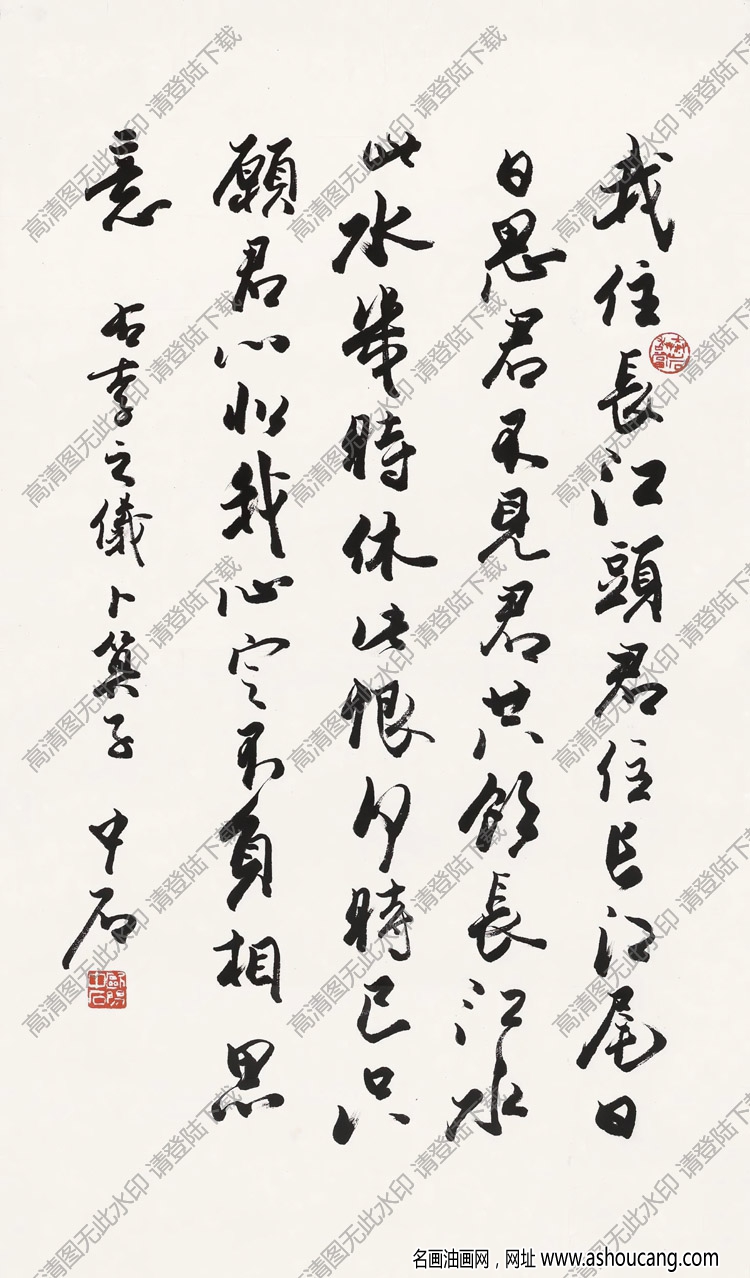 我住長江頭君住长江尾日
日思君不見君共飲長江水
此水幾時休此恨何時已只
願君心似我心定不負相思
意 右李之儀卜算子 中石
歐陽中石
高清图无此水印 请登陆下载
名画油画网，网址 www.ashoucang.com